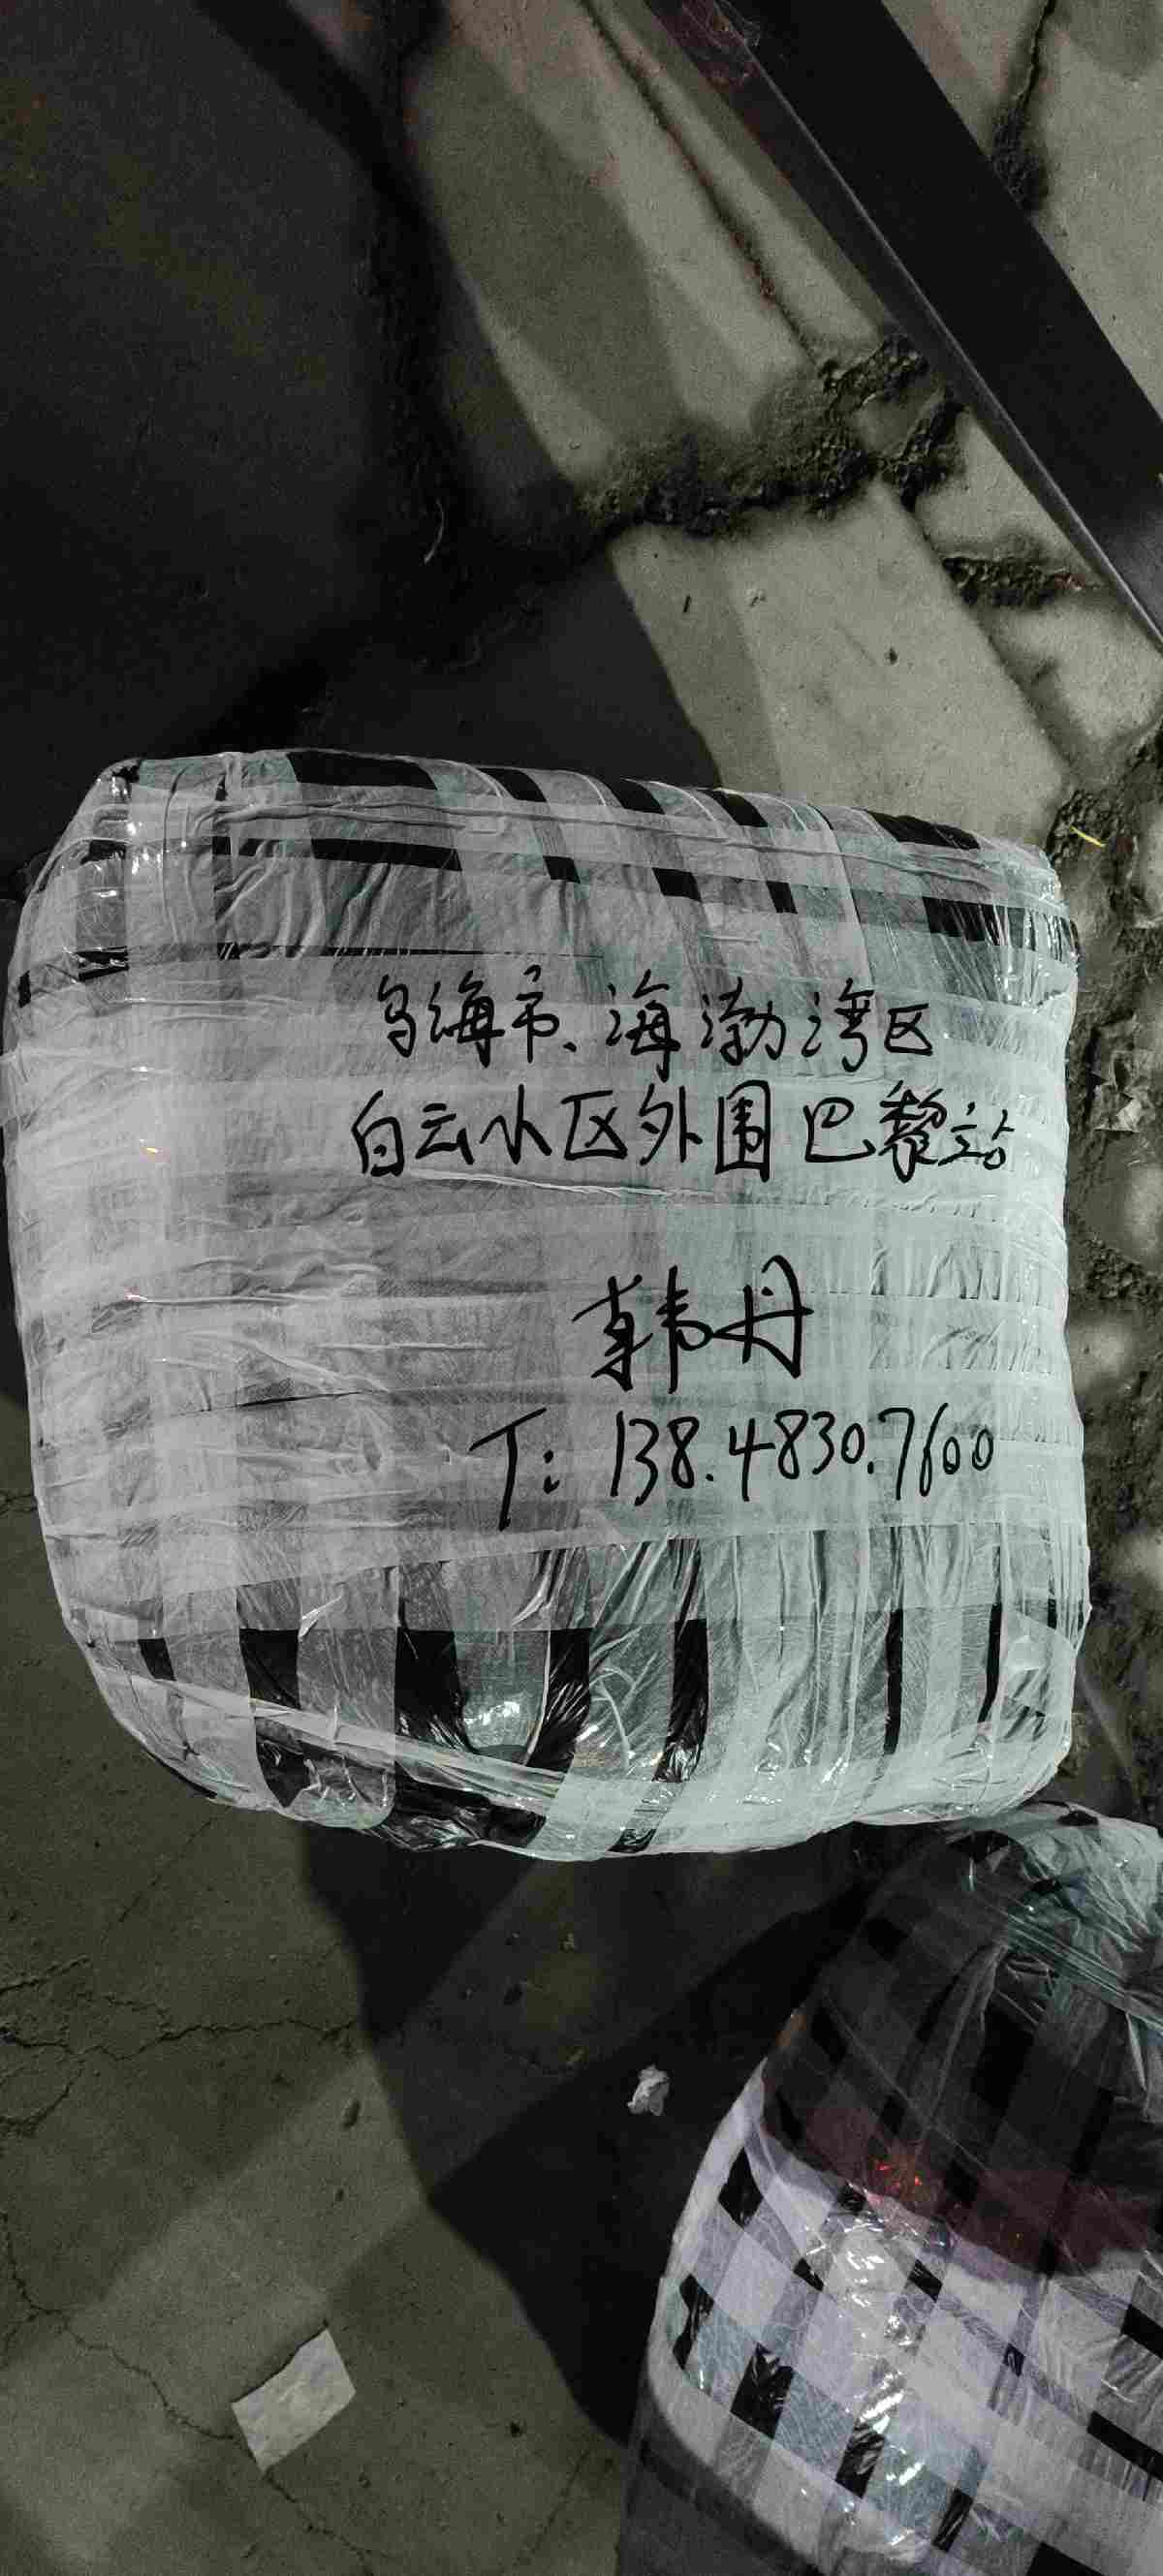 乌海市、海渤湾区
白云小区外围巴黎站
韩丹
T: 138.4830.7600